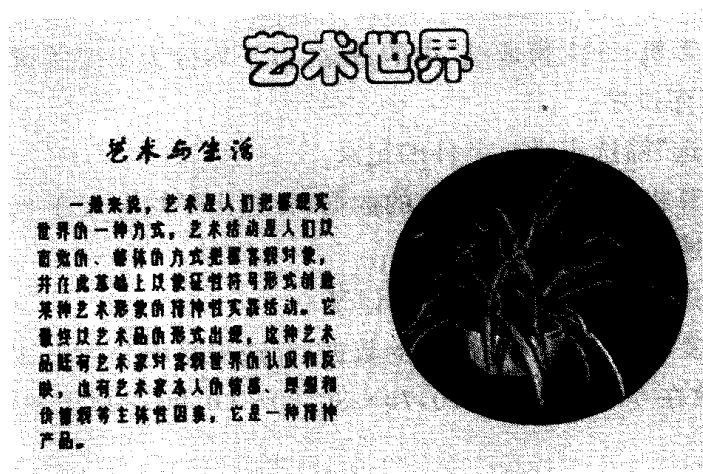 艺术世界
艺术与生活
一般来说，艺术是人们把握现实
世界的一种方式，艺术活动是人们以
直觉的、整体的方式把握客观对象，
并在此基础上以象征性符号形式创造
某种艺术形象的精神性实践活动。它
最终以艺术品的形式出现，这种艺术
品既有艺术家对客观世界的认识和反
映，也有艺术家本人的情感、理想和
价值观等主体性因素，它是一种精神
产品。